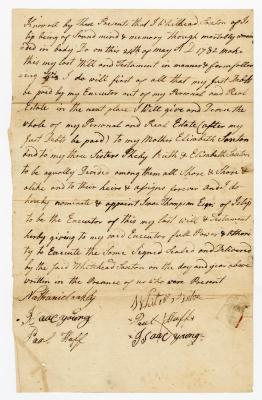 Know all by these Presents that I Whitehead Saxton of Is
lip being of Sound mind & memory though mortally woun
ded in body Do on this 24th of May A.D 1782 make
this my last Will and Testament in manner & form follow
ing Viz I do will first of all that my just Debts
be paid by my Executor out of my Personal and Real
Estate in the next place I Will give and Devise the
whole of my Personal and Real Estate (after my
just Debts be paid) to my Mother Elizabeth Saxton
and to my three Sisters Phebe Ruth & Elizabeth Saxton
to be equally Divided among them all Share & Share
alike and to their heirs & assigns forever And I do
hereby nominate & appoint Isaac Thompson Esqr of Islip
to be the Executor of this my last Will & Testament
hereby giving to my said Executor full Power & Autho
rity to Execute the Same Signed Sealed and Delivered
by the Said Whitehead Saxton on the day and year above
written in the Presence of us who were Present
Nathaniel Oakly
Whitehead Saxton
Isaac young
Paul Huff
Paul Huff
Isaac young